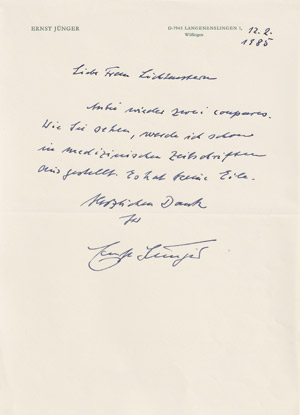 ERNST JÜNGER
D-7945 LANGENENSLINGEN 1,
Wilflingen
12. 2.
1985
Liebe Frau Lichtenstern
Anbei wieder zwei coupures.
Wie Sie sehen, werde ich schon
in medizinischen Zeitschriften
ausgestellt. Es hat keine Eile.
Herzlichen Dank
Ihr
Ernst Jünger